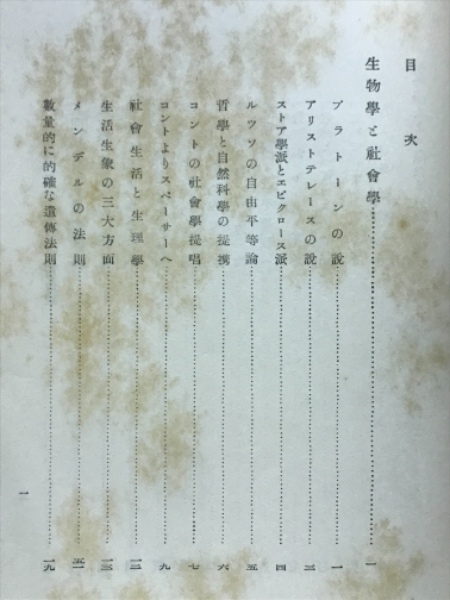 目次
生物學と社會學……………一
プラトーンの說……………一
アリストテレースの說……………三
ストア學派とエピクロース派……………四
ルソーの自由平等論……………五
哲學と自然科學の提携……………六
コントの社會學提唱……………七
コントよりスペーサーへ……………九
社會生活と生理學……………一二
生活生象の三大方面……………一三
メンデルの法則……………一五
數量的に的確な遺傳法則……………一九
一